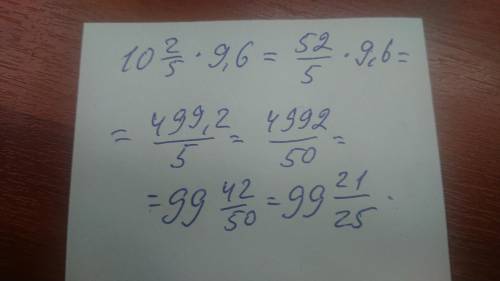 10 2/5 · 9,6 = 52/5 · 9,6 =
= 499,2/5 = 4992/50 =
= 99 42/50 = 99 21/25 .